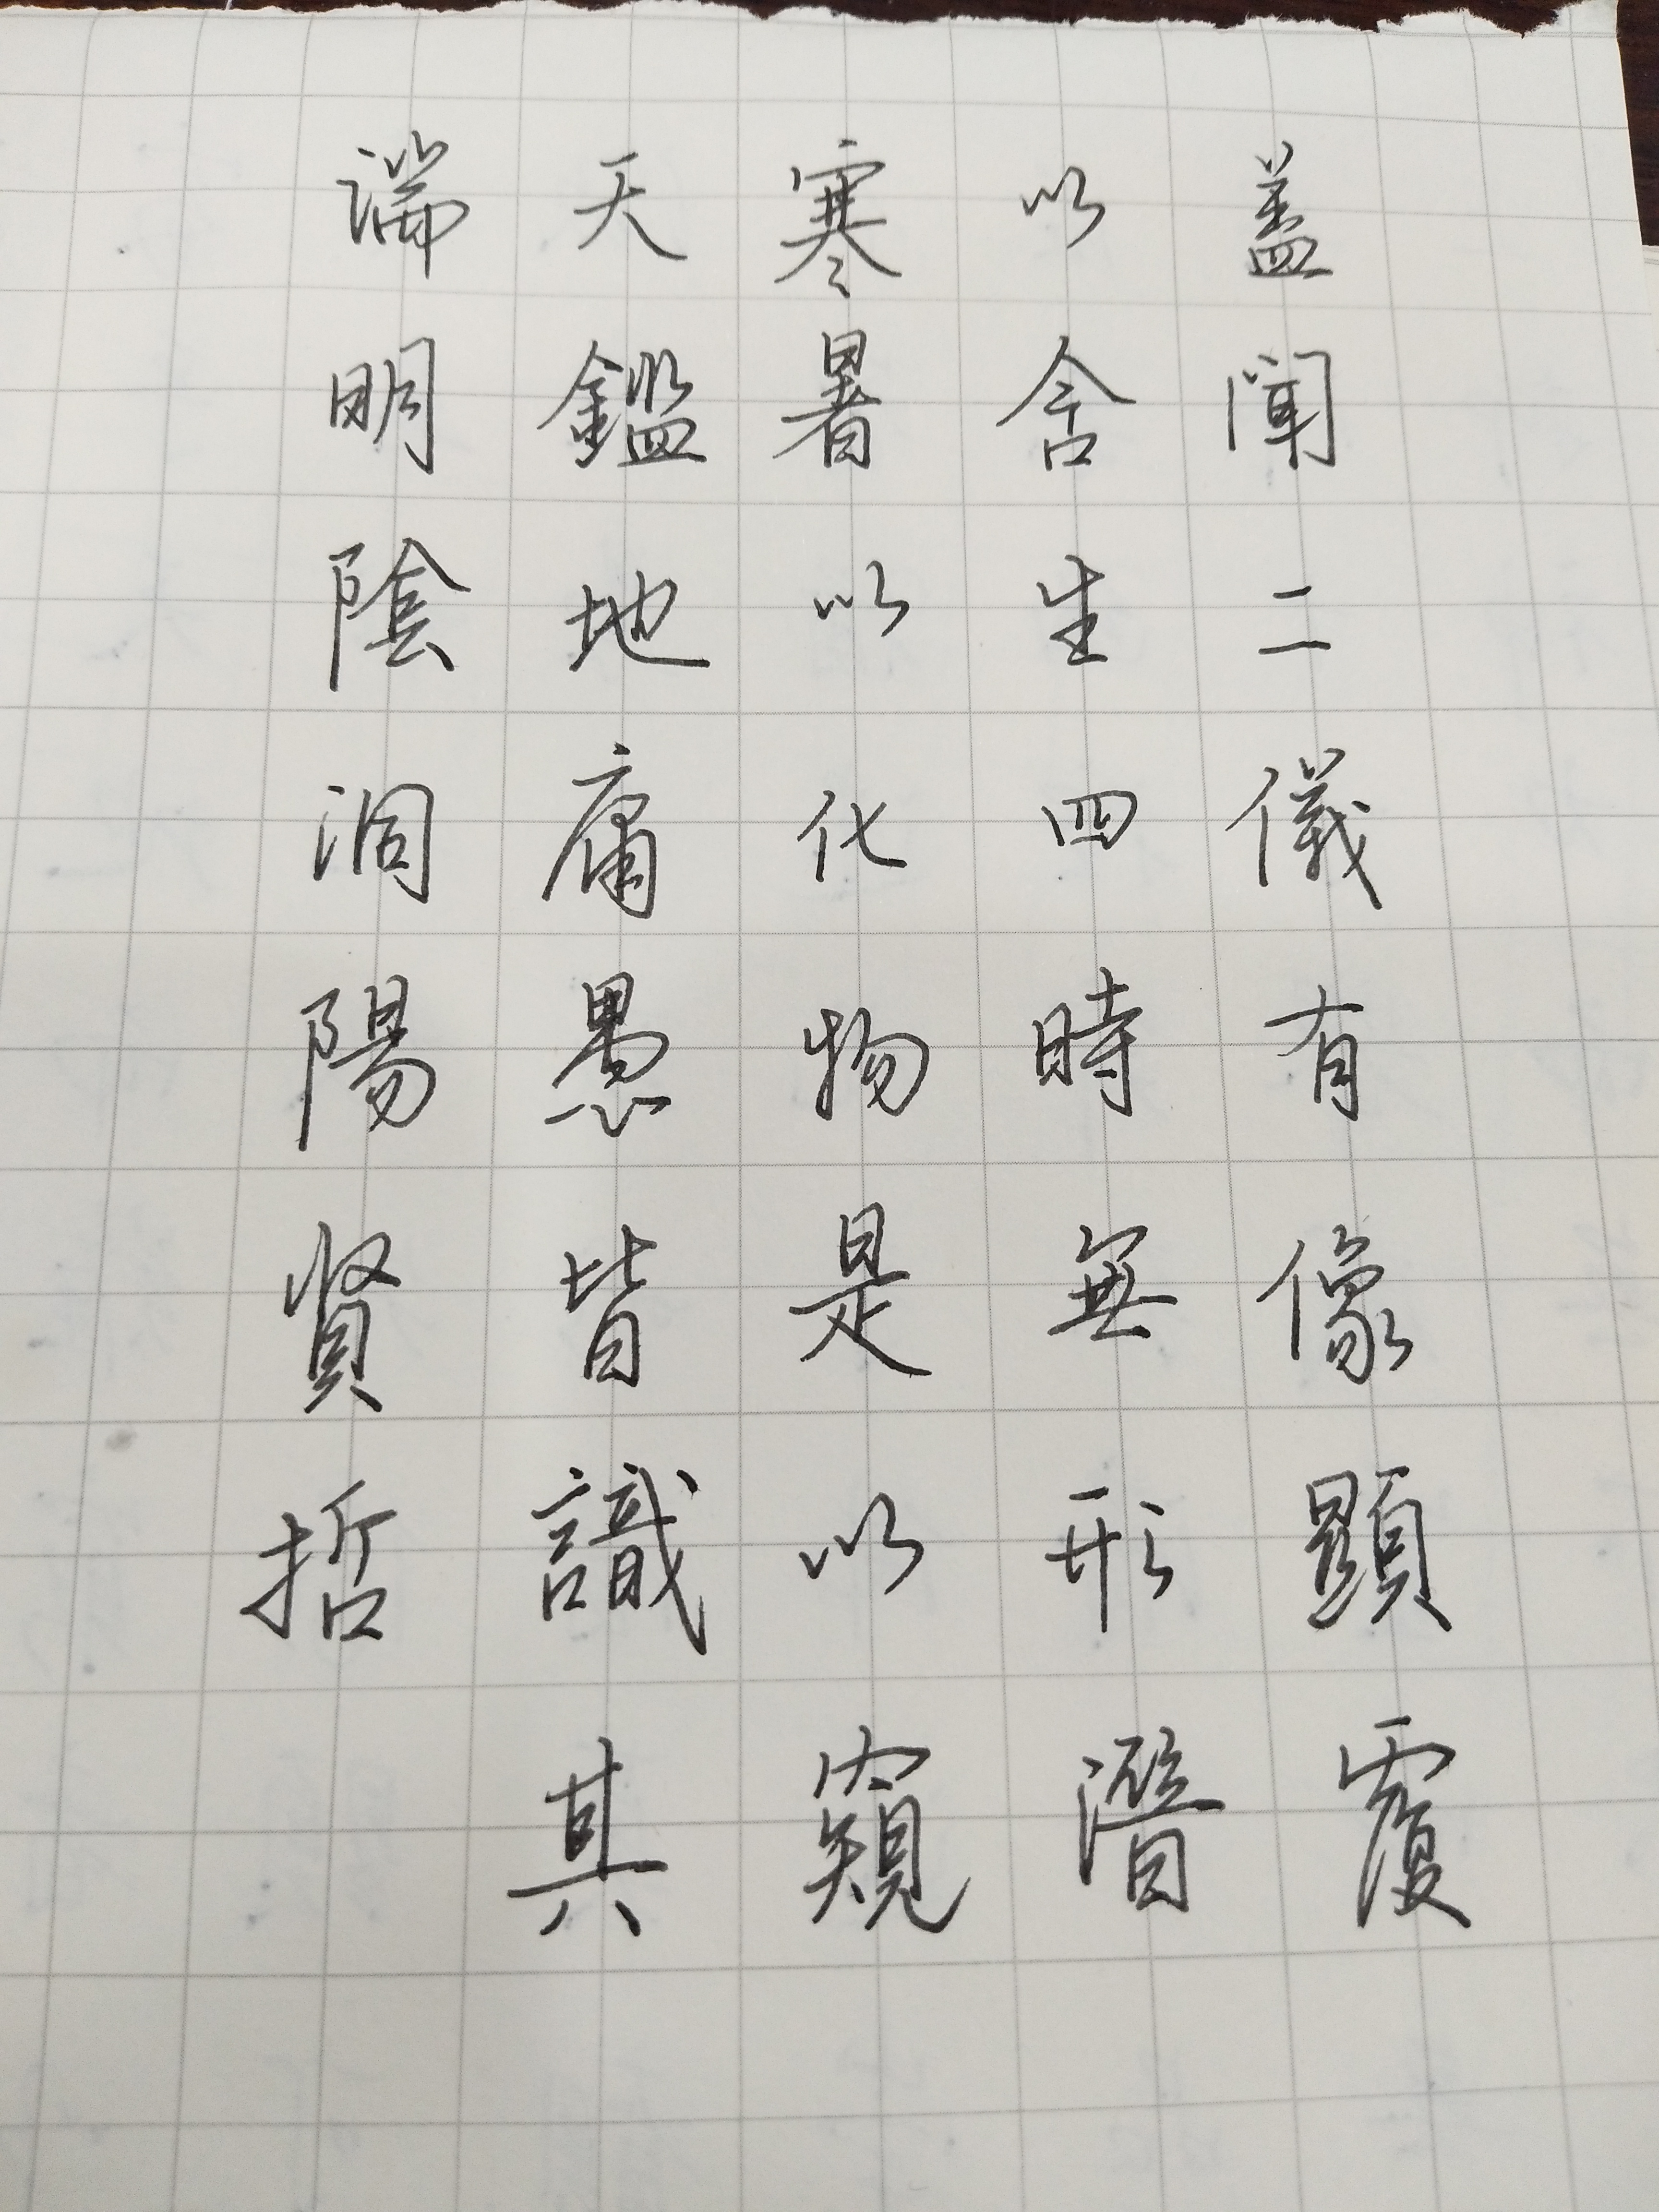 蓋聞二儀有像顯覆
以含生四時無形潛
寒暑以化物是以窺
天鑑地庸愚皆識其
端明陰洞陽賢哲